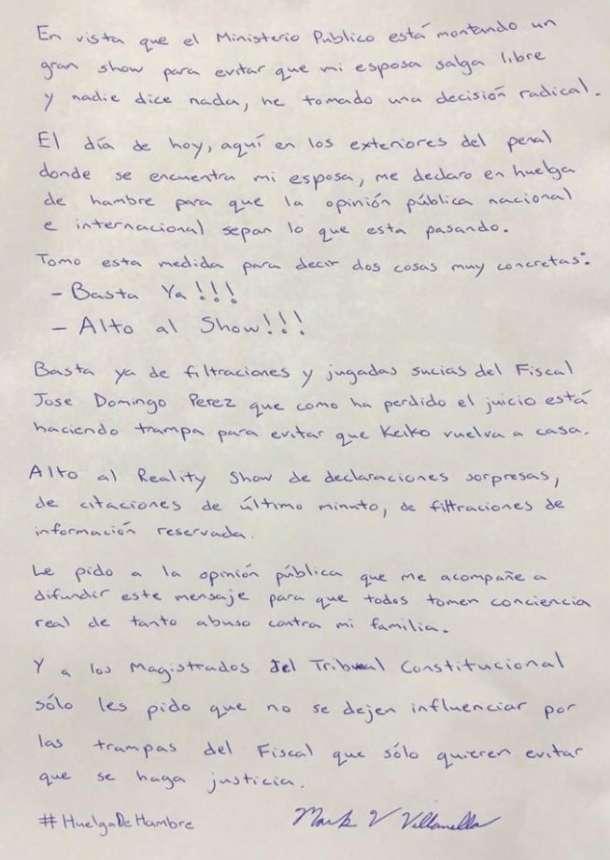 En vista que el Ministerio Público está montando un
gran show para evitar que mi esposa salga libre
y nadie dice nada, he tomado una decisión radical.
El día de hoy, aquí en los exteriores del penal
donde se encuentra mi esposa, me declaro en huelga
de hambre para que la opinión pública nacional
e internacional sepan lo que esta pasando.
Tomo esta medida para decir dos cosas muy concretas:
- Basta Ya!!!
- Alto al Show!!!
Basta ya de filtraciones y jugadas sucias del Fiscal
Jose Domingo Perez que como ha perdido el juicio está
haciendo trampa para evitar que Keiko vuelva a casa.
Alto al Reality Show de declaraciones sorpresas,
de citaciones de último minuto, de filtraciones de
información reservada.
Le pido a la opinión pública que me acompañe a
difundir este mensaje para que todos tomen conciencia
real de tanto abuso contra mi familia.
Y a los Magistrados del Tribunal Constitucional
sólo les pido que no se dejen influenciar por
las trampas del Fiscal que sólo quieren evitar
que se haga justicia.
#HuelgaDeHambre Mark V Villanella